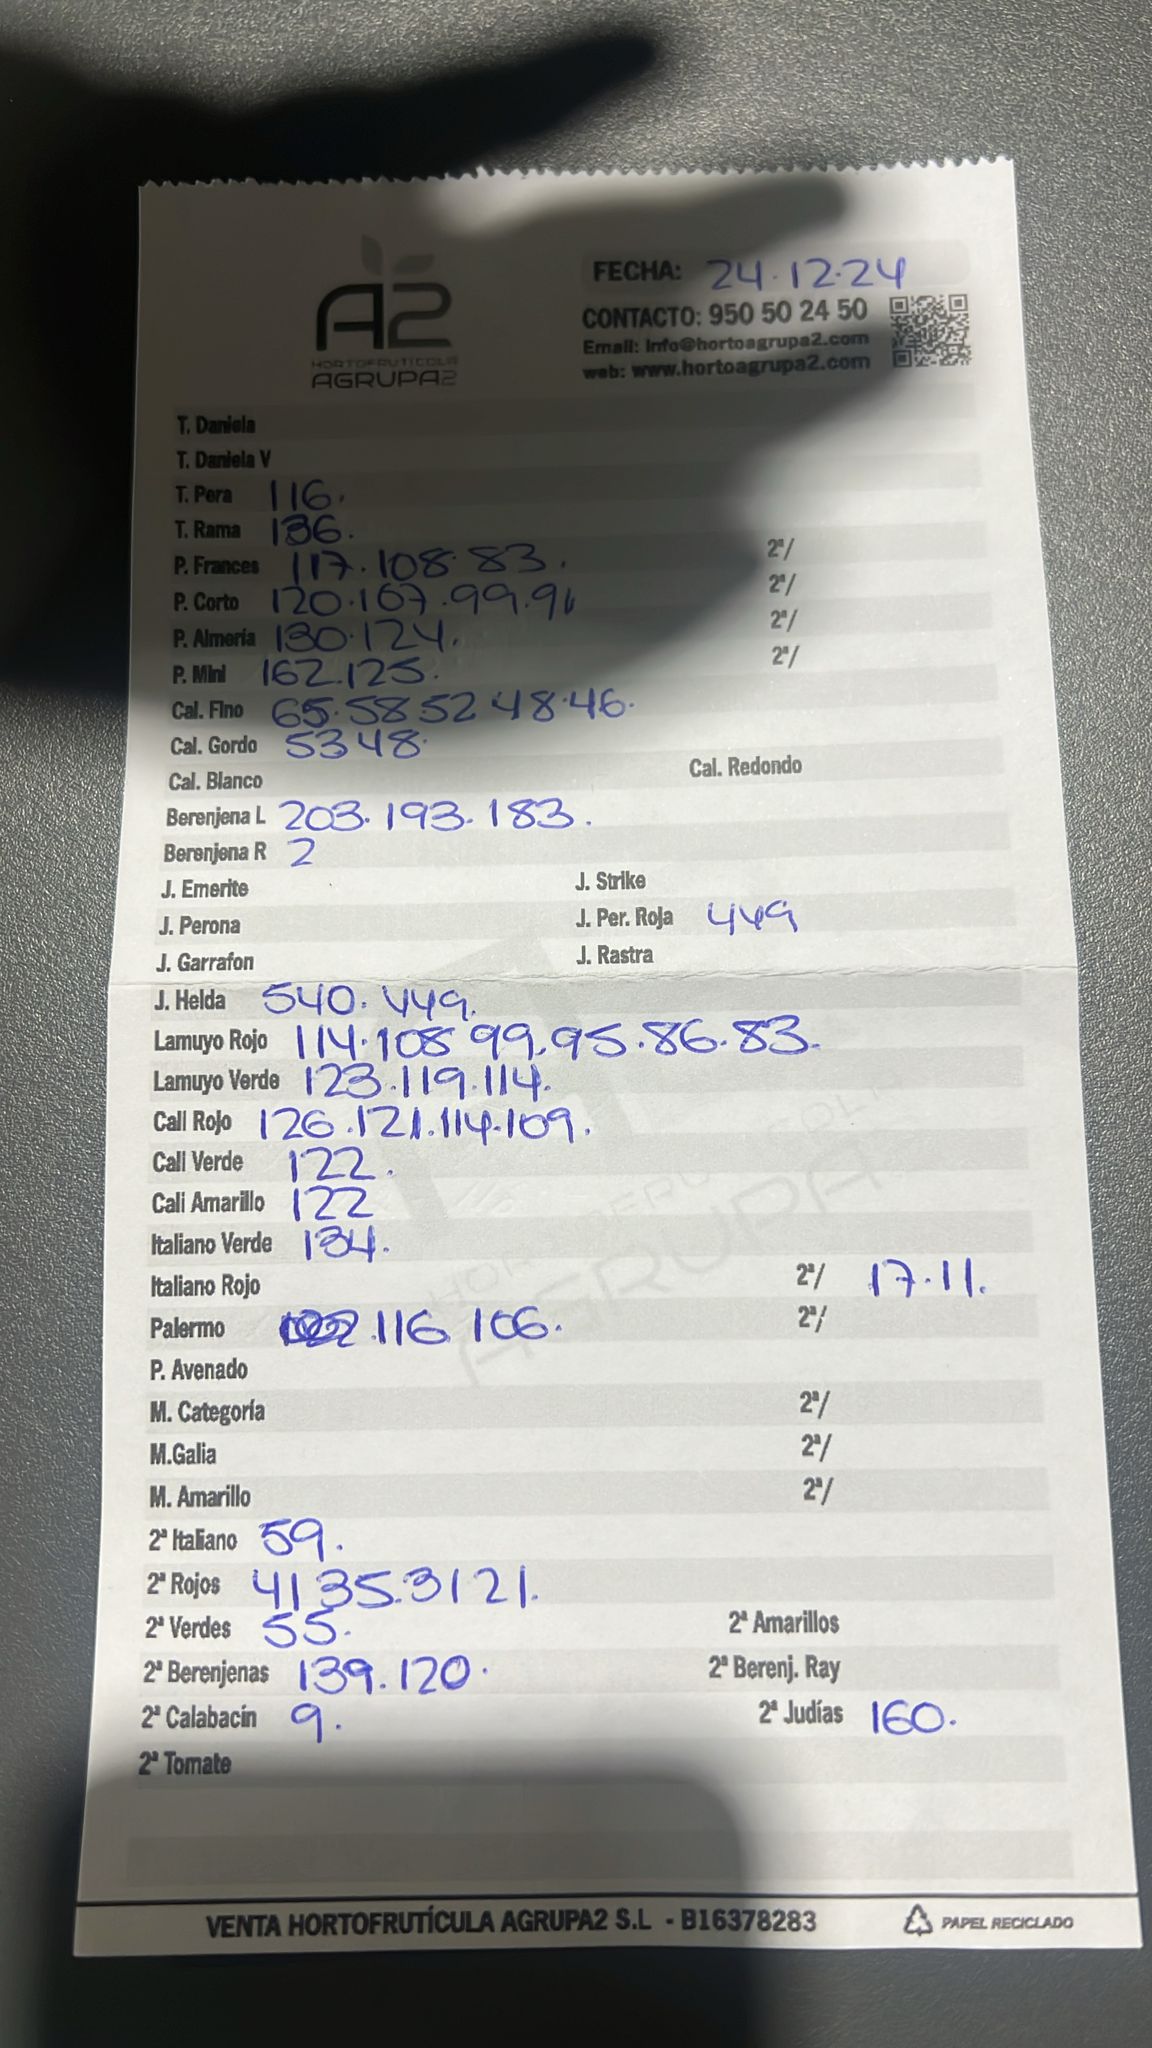 A2
HORTOFRUTÍCOLA
AGRUPA2
FECHA: 24.12.24
CONTACTO: 950 50 24 50
Email: info@hortoagrupa2.com
web: www.hortoagrupa2.com
T. Daniela
T. Daniela V
T. Pera 116.
T. Rama 136.
P. Frances 117.108.83. 2ª/
P. Corto 120.107.99.91 2ª/
P. Almería 130.124. 2ª/
P. Mini 162.125. 2ª/
Cal. Fino 65.58.52 48.46.
Cal. Gordo 53 48.
Cal. Blanco Cal. Redondo
Berenjena L 203.193.183.
Berenjena R 2
J. Emerite J. Strike
J. Perona J. Per. Roja 449
J. Garrafon J. Rastra
J. Helda 540.449.
Lamuyo Rojo 114.108 99.95.86.83.
Lamuyo Verde 123.119.114.
Cali Rojo 126.121.114.109.
Cali Verde 122.
Cali Amarillo 122
Italiano Verde 134.
Italiano Rojo 2ª/ 17.11.
Palermo .116 106. 2ª/
P. Avenado
M. Categoría 2ª/
M.Galia 2ª/
M. Amarillo 2ª/
2ª Italiano 59.
2ª Rojos 41 35.31 21.
2ª Verdes 55. 2ª Amarillos
2ª Berenjenas 139.120. 2ª Berenj. Ray
2ª Calabacín 9. 2ª Judías 160.
2ª Tomate
VENTA HORTOFRUTÍCULA AGRUPA2 S.L - B16378283 PAPEL RECICLADO